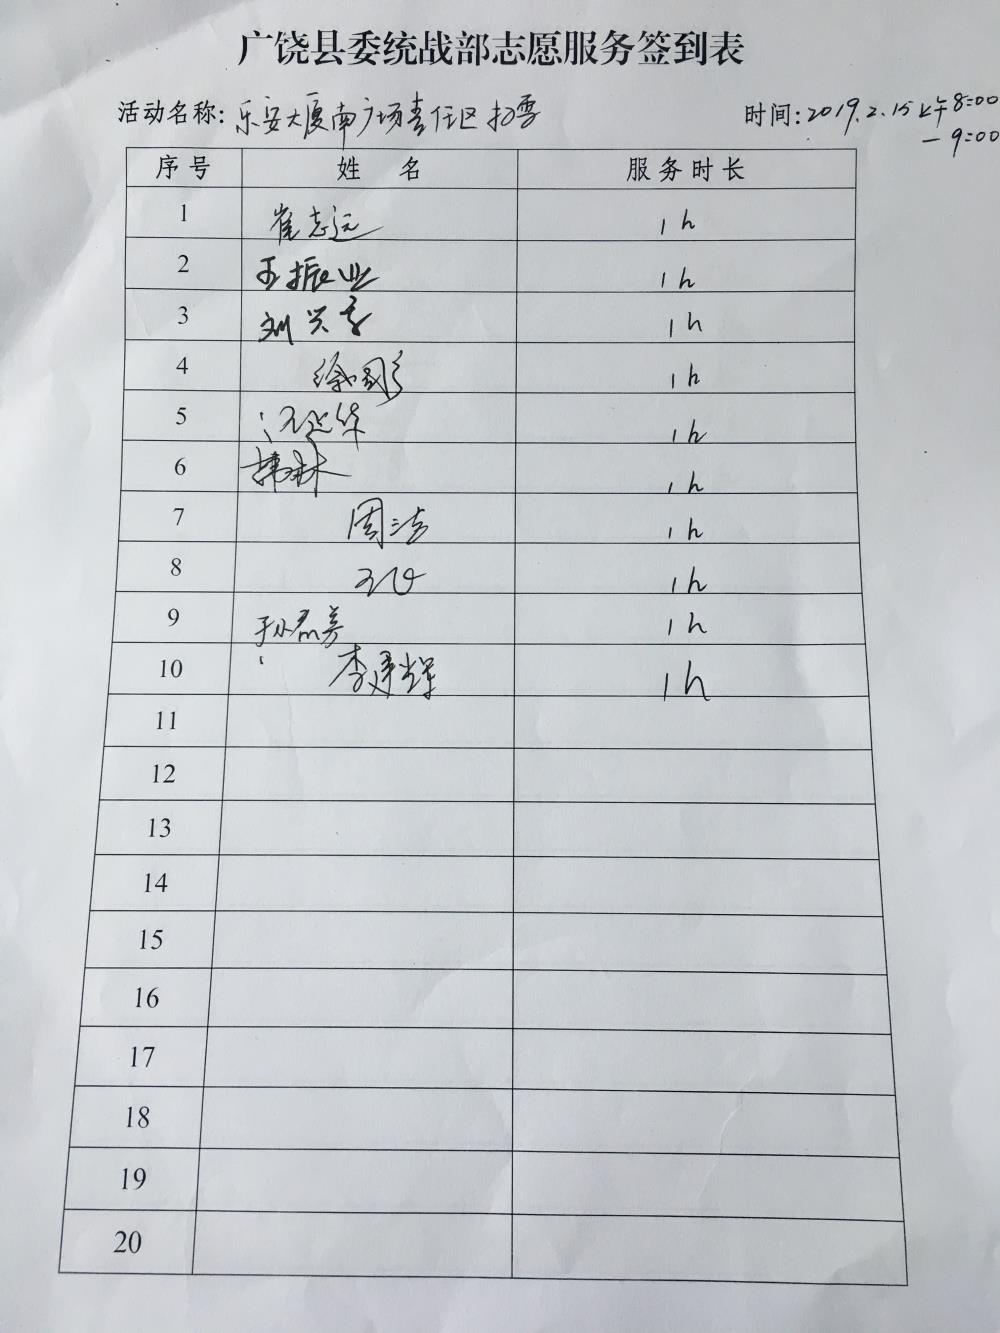 广饶县委统战部志愿服务签到表
活动名称:乐安大厦南广场责任区扫雪 时间:2019.2.15上午8:00
-9:00
序号 姓名 服务时长
1 崔志远 1h
2 王振业 1h
3 刘兴 1h
4 徐 1h
5 华 1h
6 韩林 1h
7 周洁 1h
8 1h
9 孙磊芳 1h
10 李建辉 1h
11
12
13
14
15
16
17
18
19
20